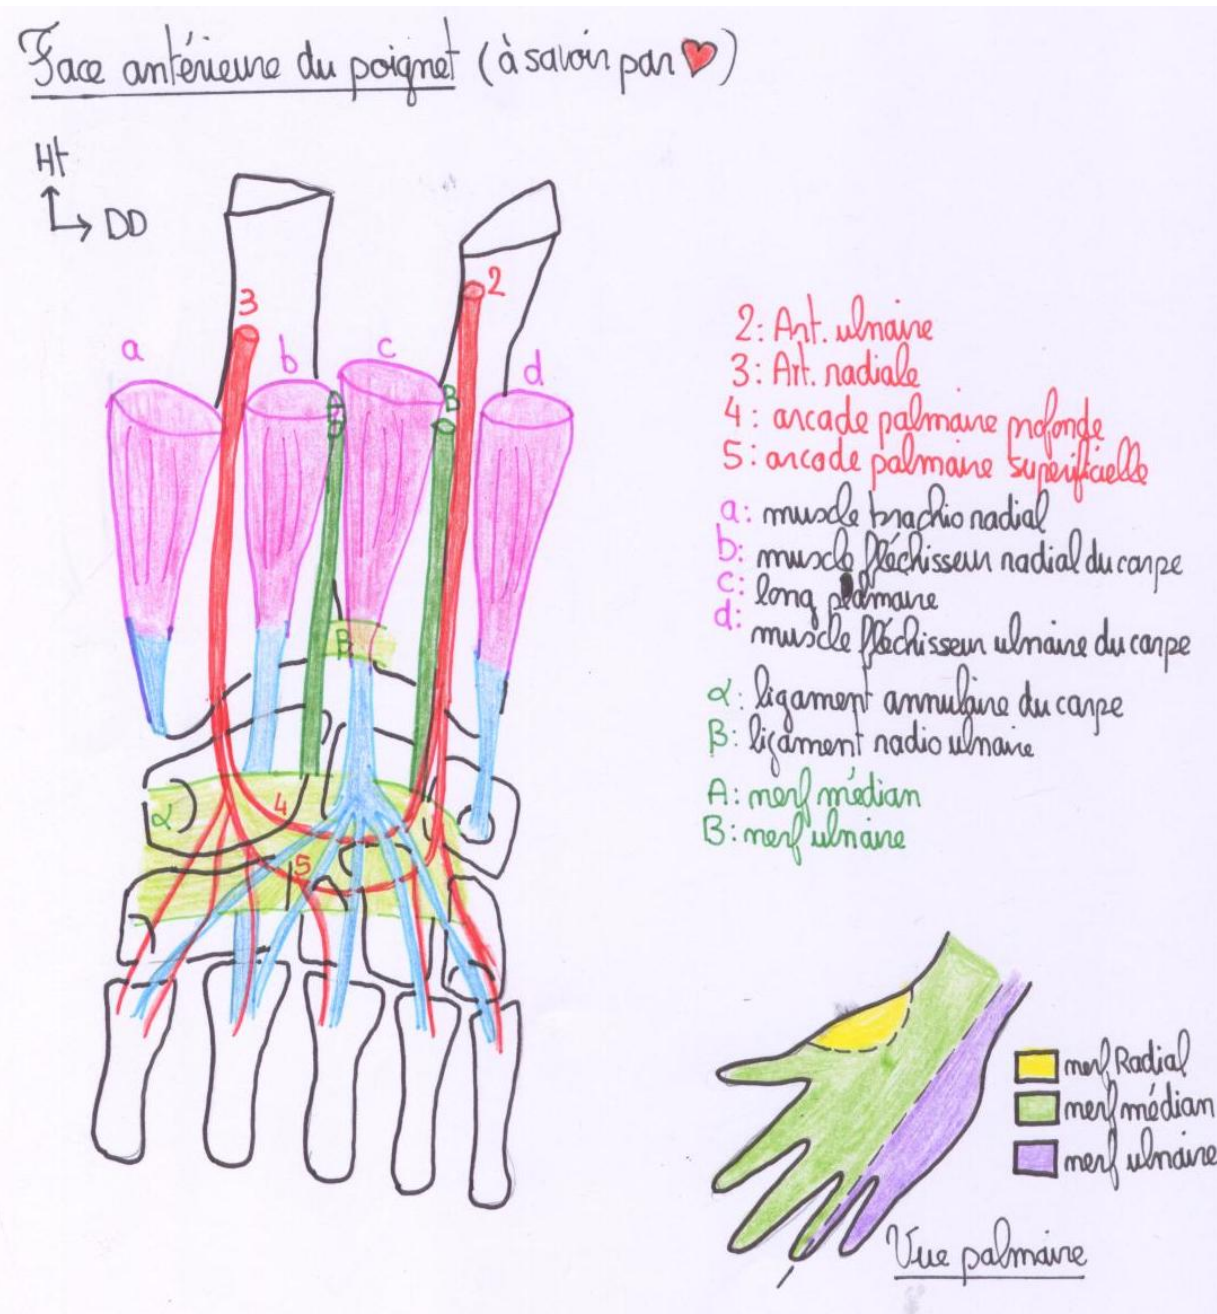 Face antérieure du poignet (à savoir par ♥)
Ht
DD
3
2
a
b
c
d
A
B
β
α
4
5
2: Art. ulnaire
3: Art. radiale
4: arcade palmaire profonde
5: arcade palmaire superificielle
a: muscle brachio radial
b: muscle fléchisseur radial du carpe
c: long palmaire
d: muscle fléchisseur ulnaire du carpe
α: ligament annulaire du carpe
β: ligament radio ulnaire
A: nerf médian
B: nerf ulnaire
nerf Radial
nerf médian
nerf ulnaire
Vue palmaire